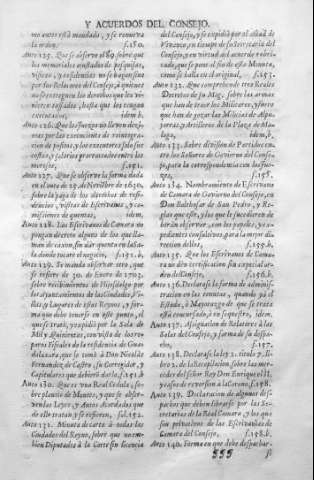 Y ACUERDOS DEL CONSEJO.
mo antes està mandado, y se renueva
la orden, f.180.
Auto 125. Que se observe el 89. sobre que
los memoriales ajustados de pesquisas,
visitas, y residencias no se hagan sino
por los Relatores del Consejo, à quienes
no se entreguen los derechos que les
vieren tassados, hasta que los tengan
executados, idem b.
Auto 126. Que los Juezes no lleven
por las execuciones de reintegra-
cion de positos, y los executores solo sus
costas, y salarios prorrateados entre los
morosos, f.151.
Auto 127. Que se observe la forma dada
en el auto de 29. de Noviembre de 1659.
sobre la paga de los derechos de resi-
dencias, visitas de Escrivanos, y co-
misiones de quentas, idem.
Auto 128. Los Escrivanos de Camara no
pongan decreto alguno de los que lla-
man de caxon, sin dàr quenta en la Sa-
la donde tocare el negocio, f.151.b.
Auto 129. Se manda observar otro, que
se refiere de 30. de Enero de 1703.
sobre recibimientos de Hijosdalgo por
los Ayuntamientos de las Ciudades, Vi-
llas, y Lugares de estos Reynos, y for-
ma que debe tenerse en este punto, el
que se tratò, y expidiò por la Sala de
Mil y Quinientas, con vista de los re-
paros Fiscales de la residencia de Gua-
dalaxara, que se tomò à Don Nicolàs
Fernandez de Castro, su Corregidor, y
Capitulares que debieron darla, f.151.b
Auto 130. Que es una Real Cedula, so-
bre plantìo de Montes, y que se obser-
ven las Leyes, y Autos Acordados que
de ello tratan, y se refieren, fol.152.
Auto 131. Minuta de carta à todas las
Ciudades del Reyno, sobre que nom-
bren Diputados à la Corte sin licencia
del Consejo, y se expidiò por el assiad de
Vivanco, en tiempo de su Secretaria del
Consejo, en virtud del acuerdo è rubrica-
do, que se pone al fin de esta Minuta,
como se halla en el original, f.153.
Auto 132. Que comprehende tres Reales
Decretos de su Mag. sobre las armas
que han de traer los Militares, y fuero
que han de gozar las Milicias de
y Artilleros de la Plaza de Ma-
laga, idem, b.
Auto 133. Sobre division de Partidos en-
tre los Señores de Govierno del Conse-
jo, para la correspondencia con los Jue-
zes, f.155.
Auto 134. Nombramiento de Escrivano
de Camara de Govierno del Consejo, en
Don Balthasar de San Pedro, y Re-
glas que este, y los que le sucedieren de-
ben observar, con los papeles, y
pendientes consultivos, para la mejor di-
reccion de ellos, f.155.b.
Auto 135. Que los Escrivanos de Cama-
ra no den certificacion sin especial or-
den del Consejo, f.156.b.
Auto 136. Declarase la forma de admi-
nistracion en las tenutas, quando yà el
Estado, ò Mayorazgo de que se trata
està concursado, ò en sequestro, idem.b
Auto 137. Assignacion de Relatores à las
Salas del Consejo, y forma de su despa-
cho, f.157.
Auto 138. Declarase la ley 2. titulo 7. li-
bro 5. de la Recopilacion, sobre las mer-
cedes del señor Rey Don Enrique el II.
y casos de reversion à la Corona, f.158.
Auto 139. Declaracion de algunos des-
pachos que deben librarse por las Se-
cretarìas de la Real Camara, y los que
son privativos de las Escrivanìas de
Camara del Consejo, f.158.b.
Auto 140. Forma en que debe despachar-
555 se